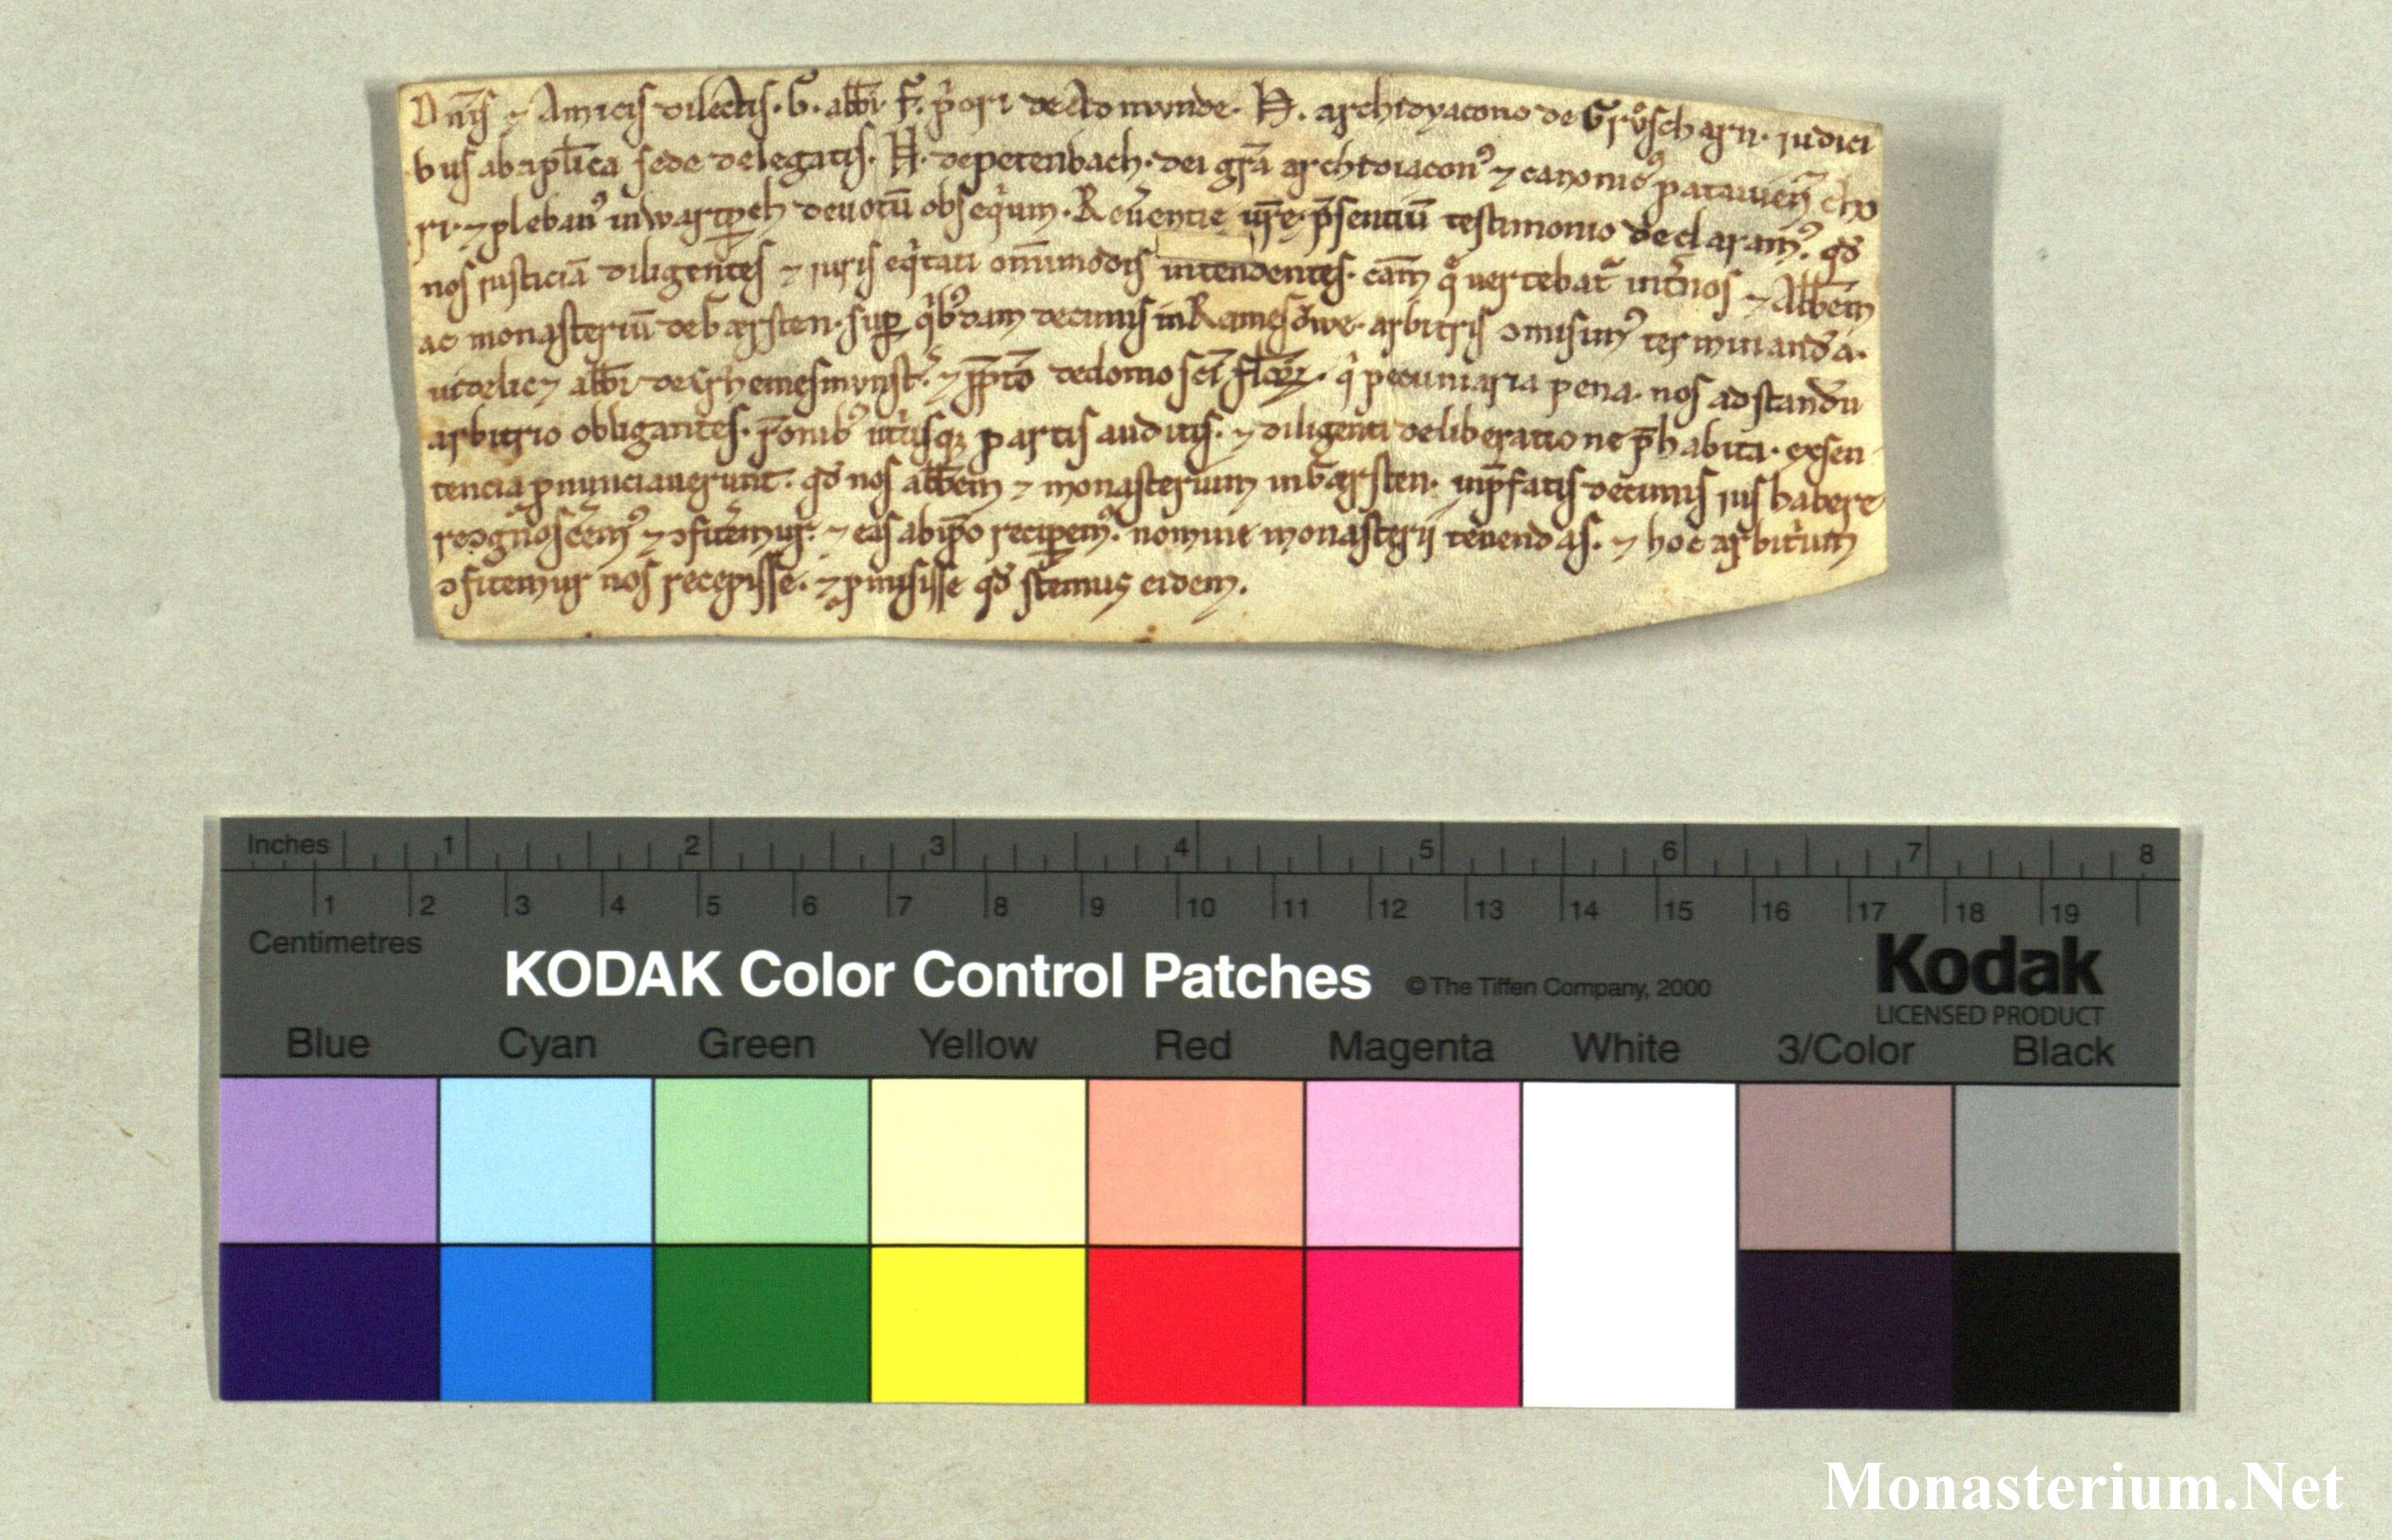 Dn̄is ⁊ Amicis dilectis. G. abb̄i. F. p̓ori de Atomunde. H. archidyacono de Gruͦscharn. iudici
bus ab ap̄lica sede delegatis. H. de petenbach. dei gr̄a archidiacon⁹ ⁊ canonic⁹ patauien̄ cho
ri. ⁊ pleban⁹ in wartpch deuotū obseq̓um. Reuerentie ur̄e. p̄sentiū testimonio declaram⁹. qd̄
nos iusticiā diligentes ⁊ iuris eq̓tati om̄imodis intendentes. cām q̄ uertebat᷑ int̓ nos ⁊ Abb̄em
ac monasteriū de Garsten. sup̱ q̓b⁹dam decimis in Ramesowe. arbitris ꝯmisim⁹ terminanda.
uidelicȝ abb̄i de Chremesmunst̓. ⁊ p̄p̄to de domo sc̄i flor̄. q̓ pecuniaria pena. nos ad standū
arbitrio obligantes. r̄onib⁹ ut̓usqȝ partis auditis. ⁊ diligenti deliberatione p̄habita. ex sen
tencia ꝓnunciauerunt. qd̄ nos abb̄em ⁊ monasterium in Garsten. in p̄fatis decimis ius habere
recognoscerem⁹ ⁊ ꝯfiteremur. ⁊ eas ab ip̄o recip̱em⁹. nomine monasterij tenendas. ⁊ hoc arbit̓um
ꝯfitemur nos recepisse. ⁊ ꝓmisisse qd̄ stemus eidem.
Inches 1 2 3 4 5 6 7 8
1 2 3 4 5 6 7 8 9 10 11 12 13 14 15 16 17 18 19
Centimetres
KODAK Color Control Patches © The Tiffen Company, 2000
Kodak
LICENSED PRODUCT
Blue Cyan Green Yellow Red Magenta White 3/Color Black
Monasterium.Net